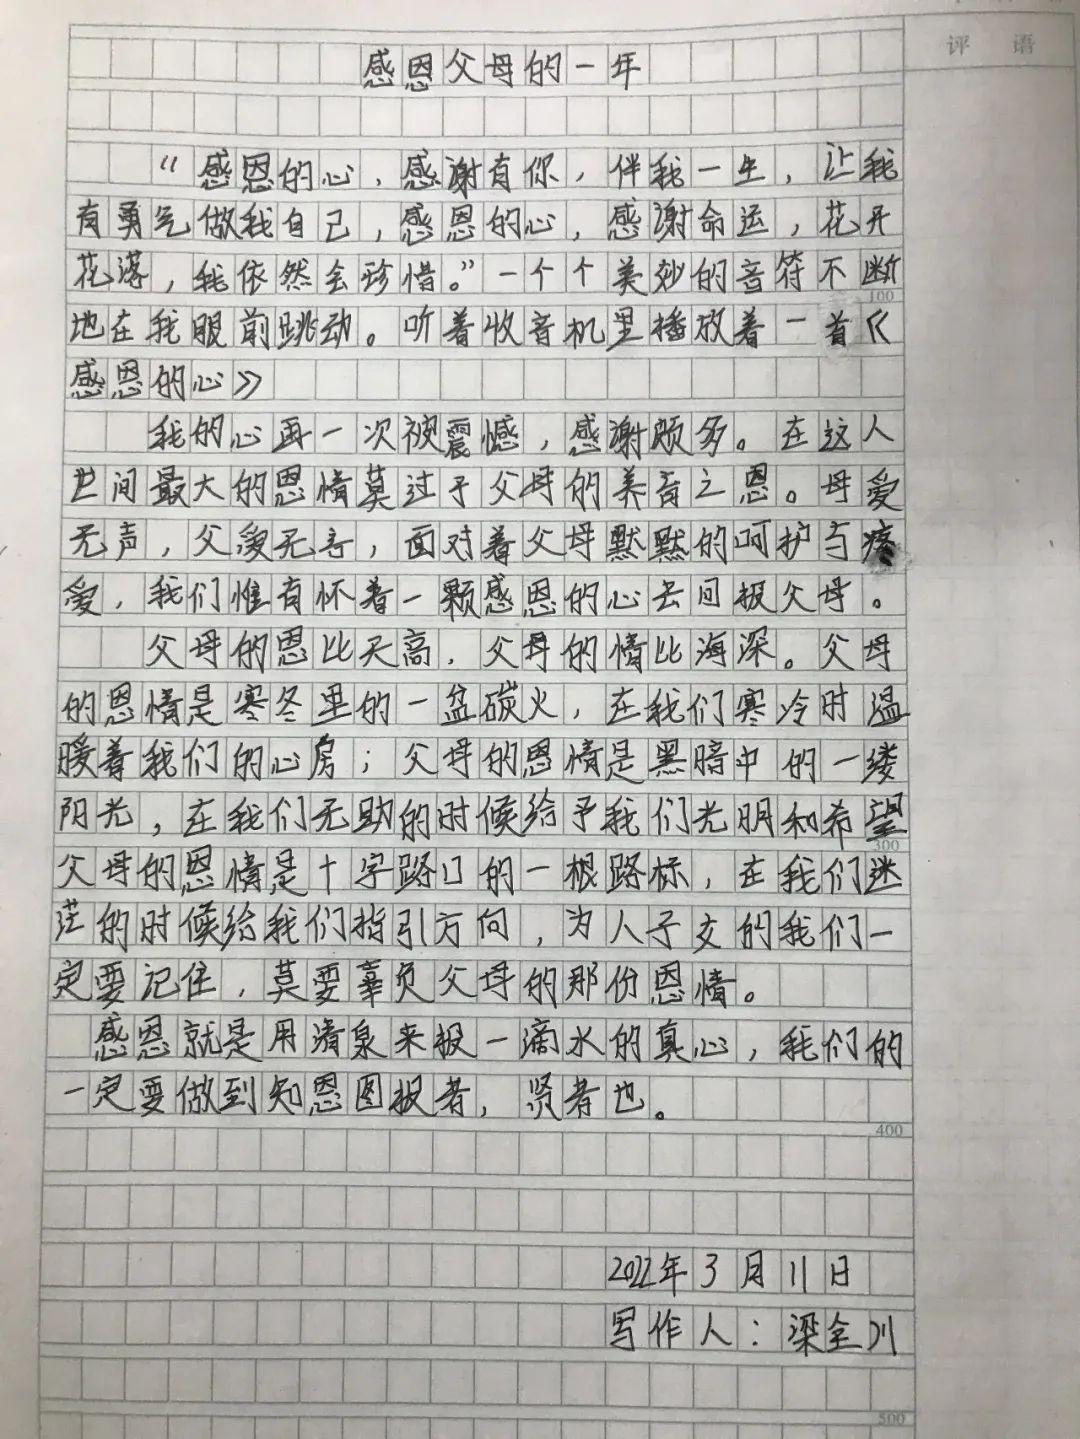 评 语
感恩父母的一年
“感恩的心，感谢有你，伴我一生，让我
有勇气做我自己，感恩的心，感谢命运，花开
花落，我依然会珍惜。”一个个美妙的音符不断
100
地在我眼前跳动。听着收音机里播放着一首《
感恩的心》
我的心再一次被震憾，感谢颇多。在这人
世间最大的恩情莫过于父母的养育之恩。母爱
无声，父爱无言，面对着父母默默的呵护与疼
爱，我们惟有怀着一颗感恩的心去回报父母。
父母的恩比天高，父母的情比海深。父母
的恩情是寒冬里的一盆碳火，在我们寒冷时温
暖着我们的心房；父母的恩情是黑暗中的一缕
阳光，在我们无助的时候给予我们光明和希望
300
父母的恩情是十字路口的一根路标，在我们迷
茫的时候给我们指引方向，为人子女的我们一
定要记住，莫要辜负父母的那份恩情。
感恩就是用清泉来报一滴水的真心，我们的
一定要做到知恩图报者，贤者也。
400
2022年3月11日
写作人：梁全川
500